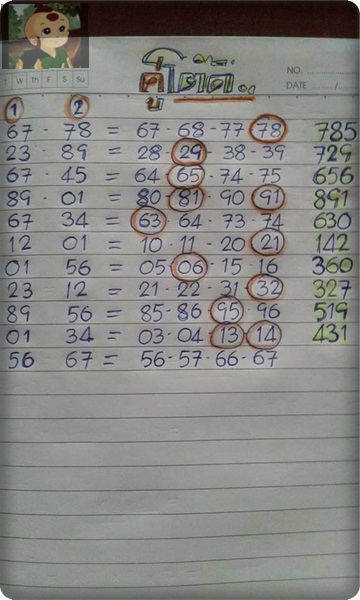 คู่โต๊ด
NO.
T W Th F S Su
DATE /
1 2
67 - 78 = 67 - 68 - 77 - 78 785
23 - 89 = 28 - 29 - 38 - 39 729
67 - 45 = 64 - 65 - 74 - 75 656
89 - 01 = 80 - 81 - 90 - 91 891
67 34 = 63 - 64 - 73 - 74 630
12 01 = 10 - 11 - 20 - 21 142
01 56 = 05 - 06 - 15 - 16 360
23 12 = 21 - 22 - 31 - 32 327
89 56 = 85 - 86 - 95 - 96 519
01 34 = 03 - 04 - 13 - 14 431
56 67 = 56 - 57 - 66 - 67